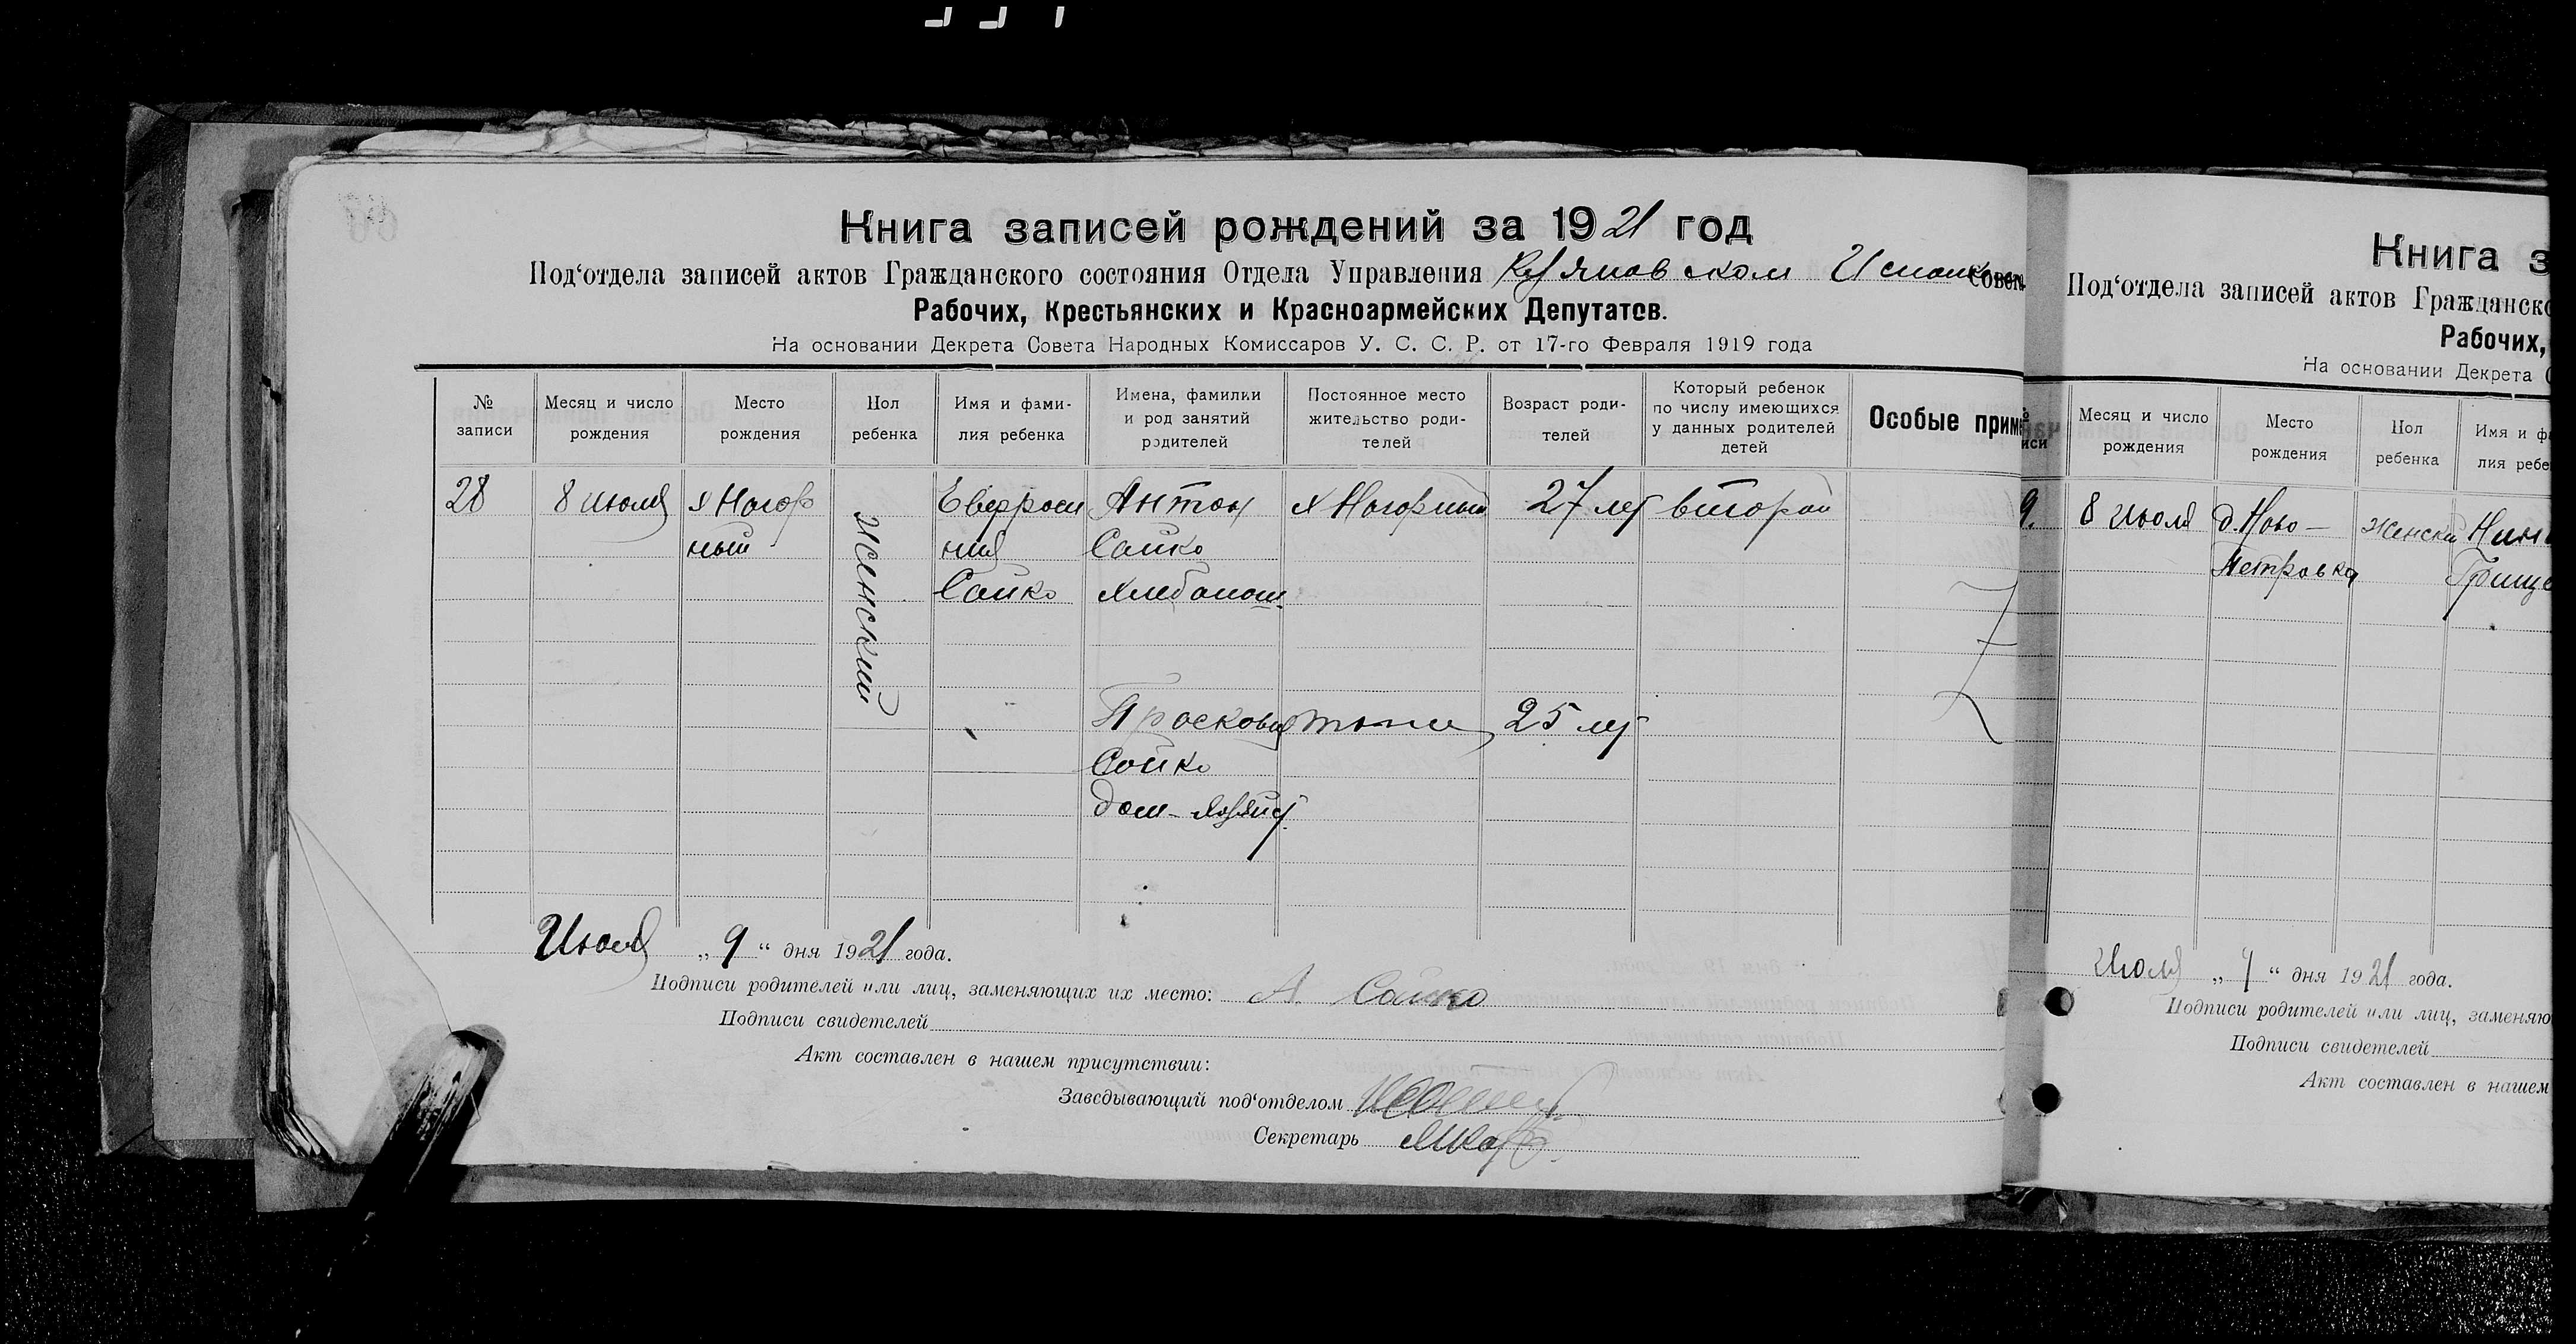 Книга записей рождений за 1921 год
Под‘отдела записей актов Гражданского состояния Отдела Управления
Рабочих, Крестьянских и Красноармейских Депутатов.
На основании Декрета Совета Народных Комиссаров У. С. С. Р. от 17-го Февраля 1919 года
№ записи
Месяц и число рождения
Место рождения
Пол ребенка
Имя и фами-
лия ребенка
Имена, фамилии
и род занятий
родителей
Постоянное место
жительство роди-
телей
Возраст роди-
телей
Который ребенок
по числу имеющихся
у данных родителей
детей
Особые прим
28
8 июля
х Нагор
ный
женский
Евфроси
ния
Сайко
Антон
Сайко
хлебопаш.
х Нагорный
27 лет
второй
Просковия
Сайко
дом-хозяйс
тоже
25 лет
Июля „9“ дня 1921 года.
Подписи родителей или лиц, заменяющих их место: А Сайко
Подписи свидетелей
Акт составлен в нашем присутствии:
Заведывающий под‘отделом
Секретарь
Книга з
Под‘отдела записей актов Гражданско
Рабочих,
На основании Декрета С
иси
Месяц и число
рождения
Место
рождения
Пол
ребенка
Имя и ф
лия ребе
9.
8 июля
д. Ново-
Петровка
женски
Нин
Грице
Июля „9“ дня 1921 года.
Подписи родителей или лиц, заменяю
Подписи свидетелей
Акт составлен в нашем